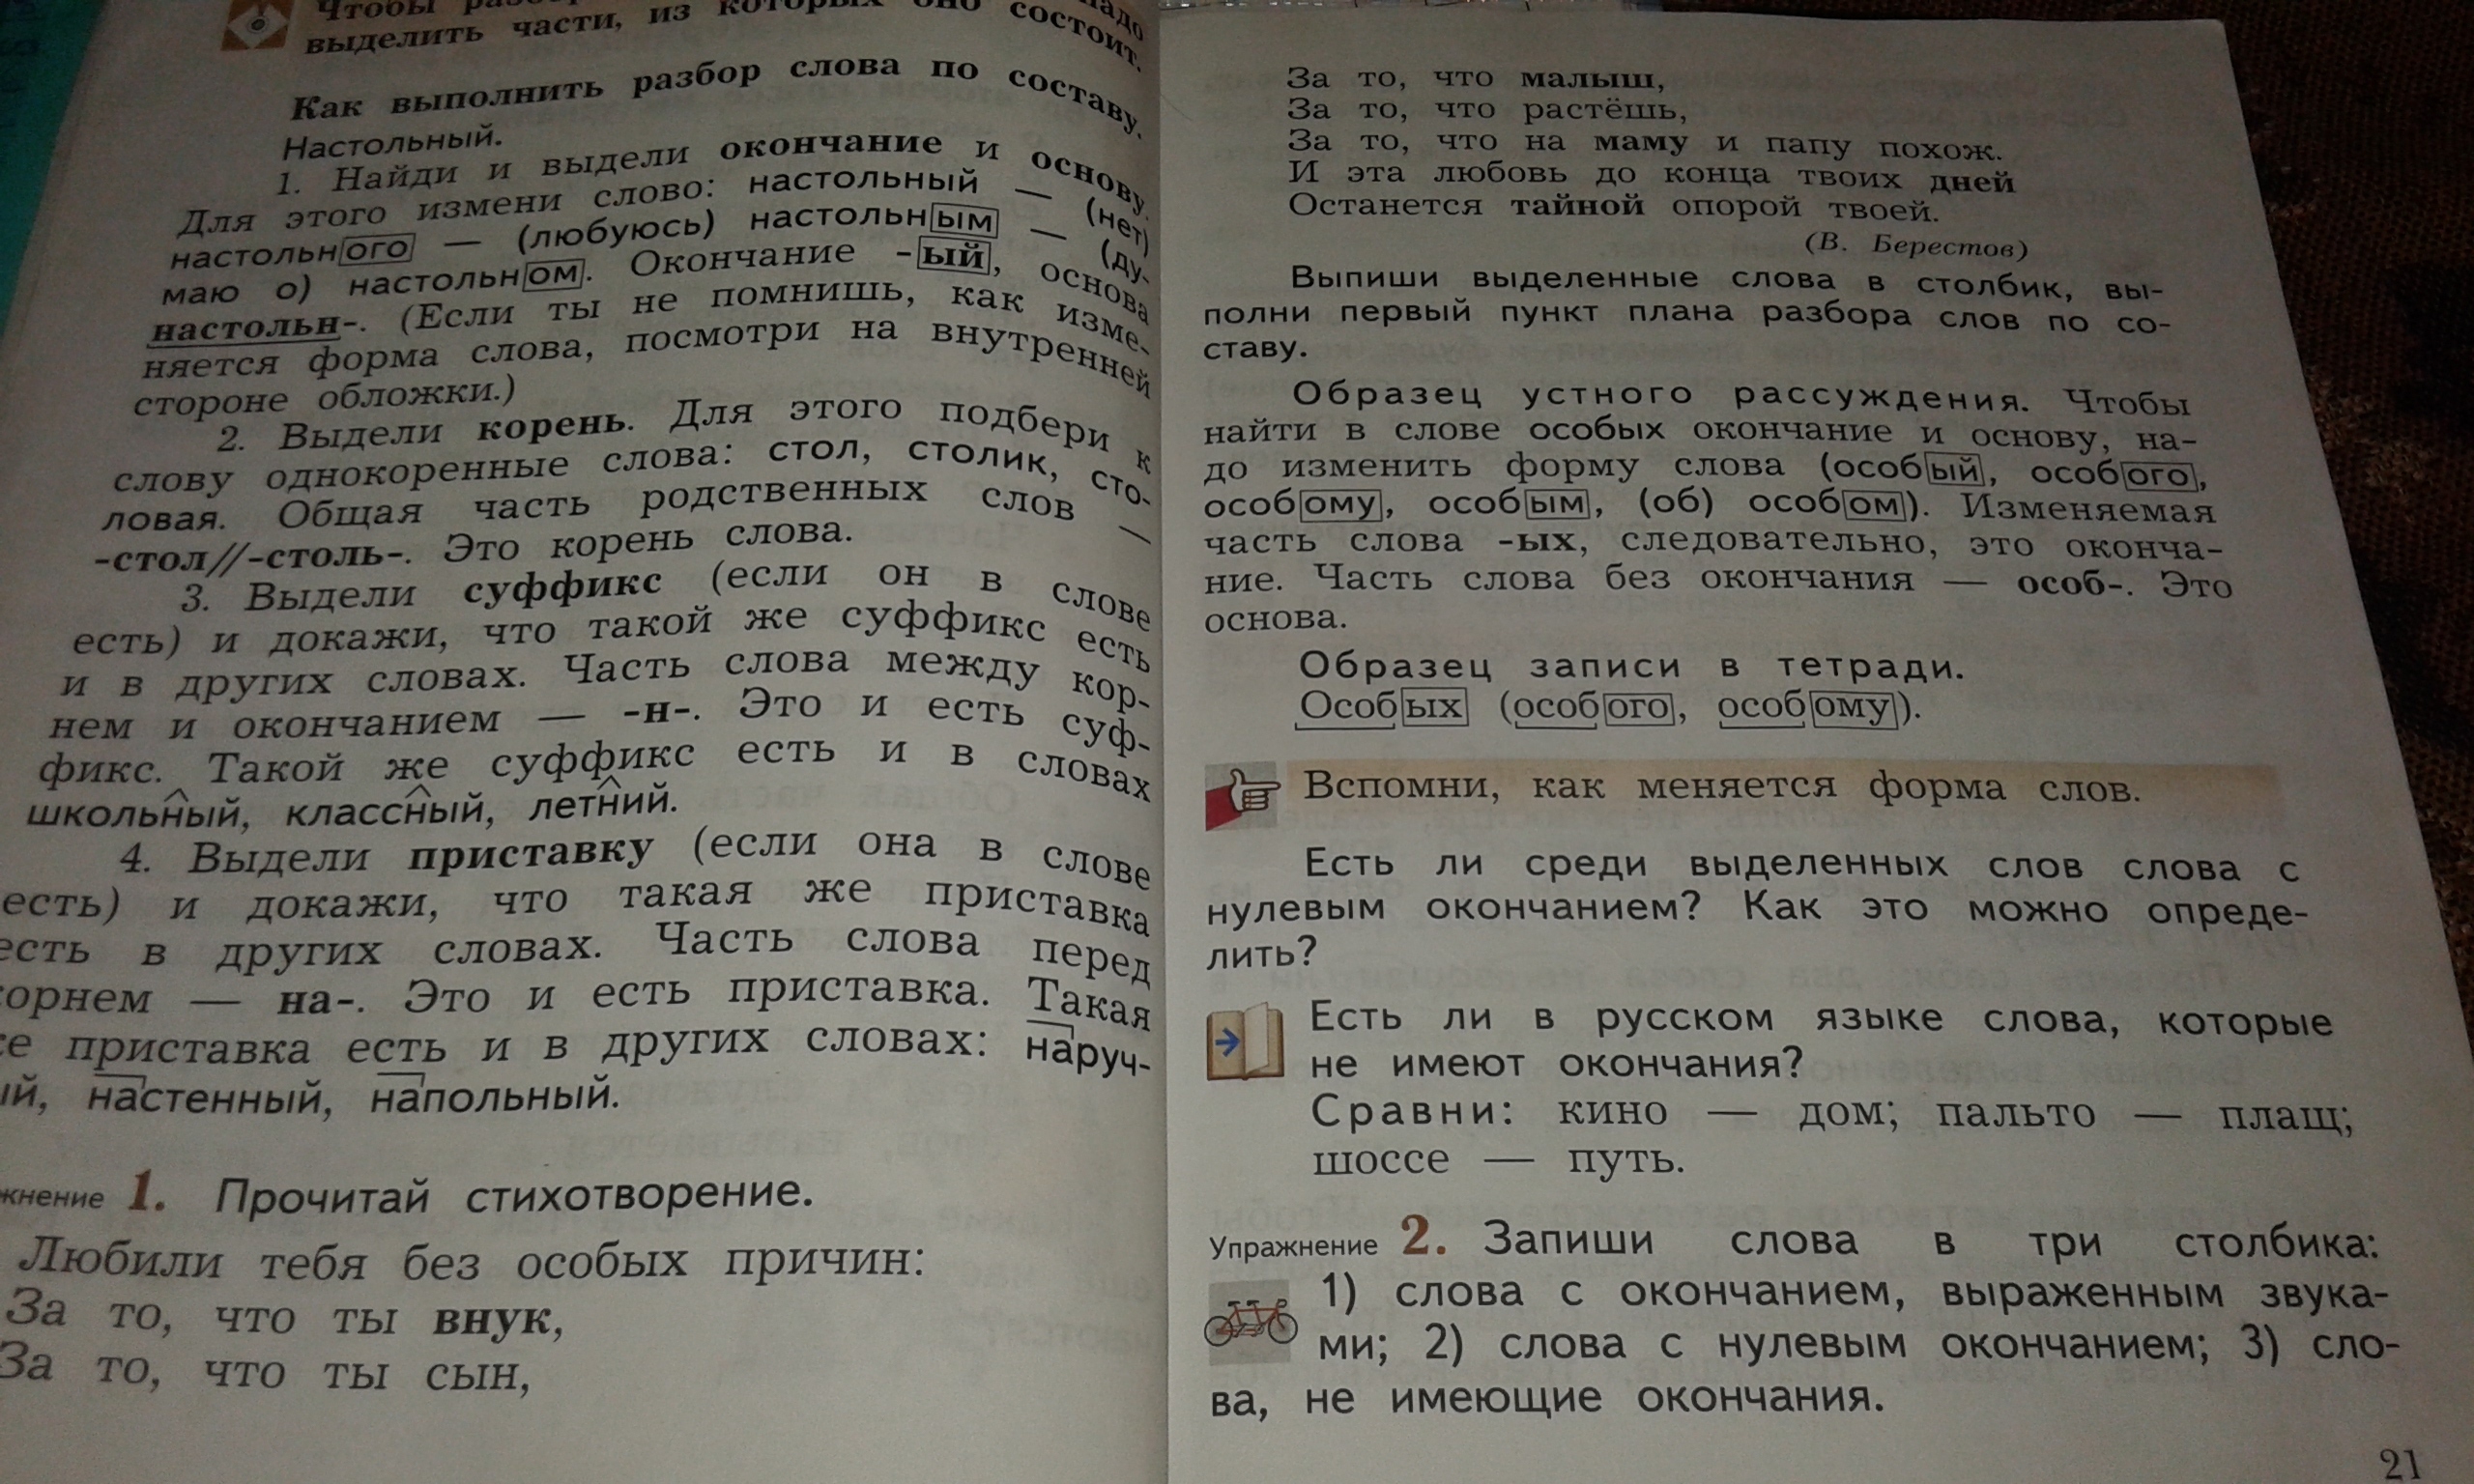 Чтобы надо
выделить части, из которых оно состоит.
Как выполнить разбор слова по составу.
Настольный.
1. Найди и выдели окончание и основу.
Для этого измени слово: настольный — (нет)
настольного — (любуюсь) настольным — (ду-
маю о) настольном. Окончание -ый, основа
настольн-. (Если ты не помнишь, как изме-
няется форма слова, посмотри на внутренней
стороне обложки.)
2. Выдели корень. Для этого подбери к
слову однокоренные слова: стол, столик, сто-
ловая. Общая часть родственных слов —
-стол//-столь-. Это корень слова.
3. Выдели суффикс (если он в слове
есть) и докажи, что такой же суффикс есть
и в других словах. Часть слова между кор-
нем и окончанием — -н-. Это и есть суф-
фикс. Такой же суффикс есть и в словах
школьный, классный, летний.
4. Выдели приставку (если она в слове
есть) и докажи, что такая же приставка
есть в других словах. Часть слова перед
орнем — на-. Это и есть приставка. Такая
е приставка есть и в других словах: наруч-
ый, настенный, напольный.
жнение 1. Прочитай стихотворение.
Любили тебя без особых причин:
За то, что ты внук,
За то, что ты сын,
За то, что малыш,
За то, что растёшь,
За то, что на маму и папу похож.
И эта любовь до конца твоих дней
Останется тайной опорой твоей.
(В. Берестов)
Выпиши выделенные слова в столбик, вы-
полни первый пункт плана разбора слов по со-
ставу.
Образец устного рассуждения. Чтобы
найти в слове особых окончание и основу, на-
до изменить форму слова (особый, особого,
особому, особым, (об) особом). Изменяемая
часть слова -ых, следовательно, это оконча-
ние. Часть слова без окончания — особ-. Это
основа.
Образец записи в тетради.
Особых (особого, особому).
Вспомни, как меняется форма слов.
Есть ли среди выделенных слов слова с
нулевым окончанием? Как это можно опреде-
лить?
Есть ли в русском языке слова, которые
не имеют окончания?
Сравни: кино — дом; пальто — плащ;
шоссе — путь.
Упражнение 2. Запиши слова в три столбика:
1) слова с окончанием, выраженным звука-
ми; 2) слова с нулевым окончанием; 3) сло-
ва, не имеющие окончания.
21